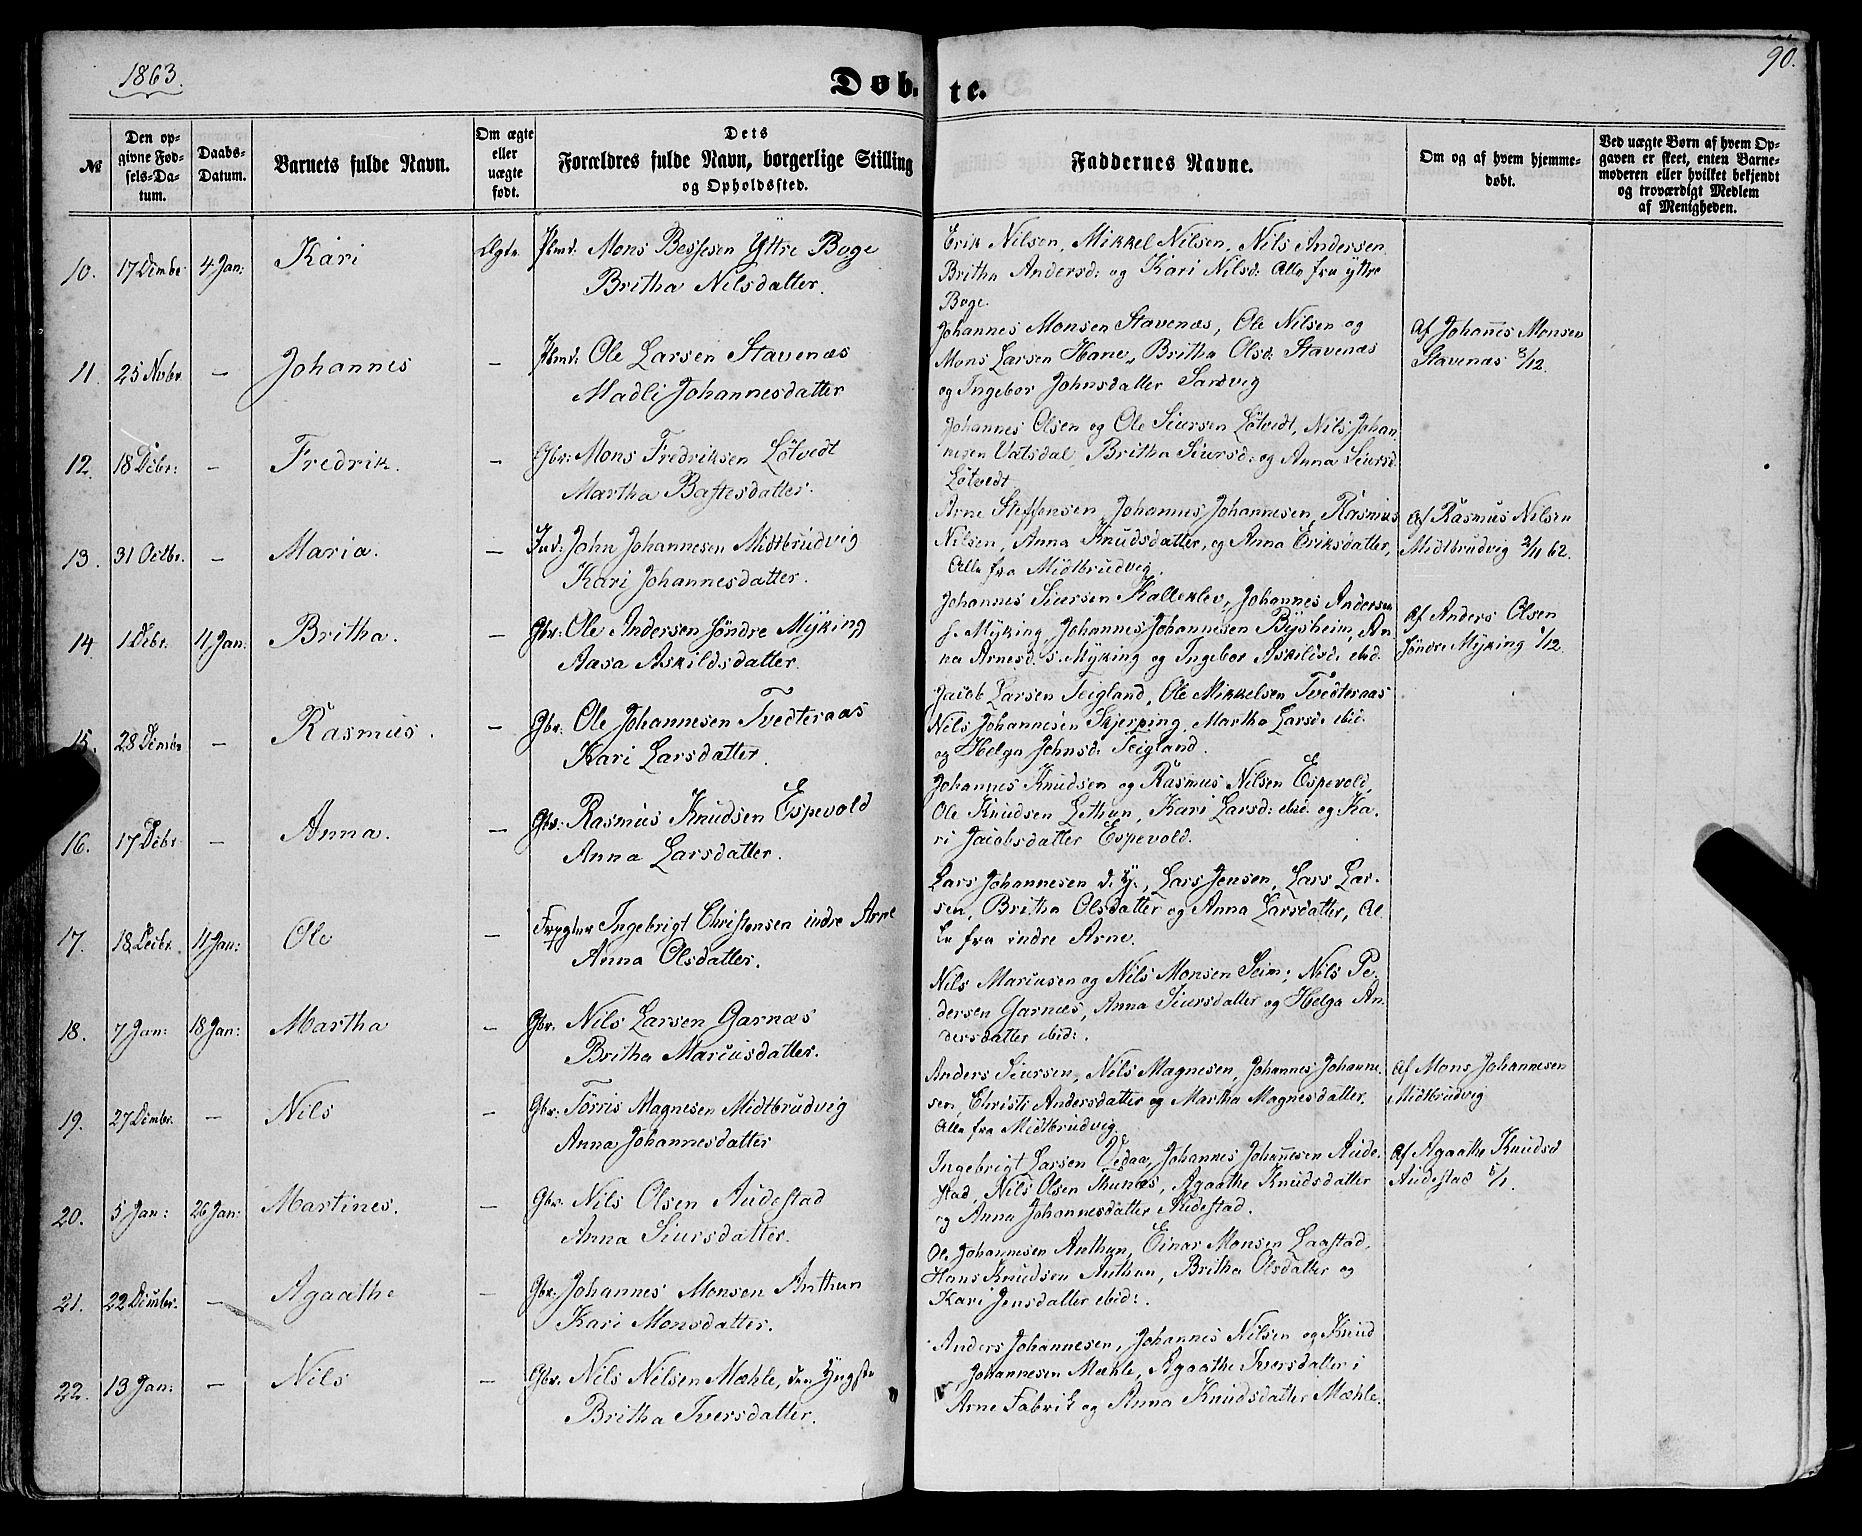 1863.
90.
Døb-te.
№
Den op-
givne Fød-
sels-Da-
tum.
Daabs-
Datum.
Barnets fulde Navn.
Om ægte
eller
uægte
født.
Dets
Forældres fulde Navn, borgerlige Stilling
og Opholdssted.
Faddernes Navne.
Om og af hvem hjemme-
døbt.
Ved uægte Børn af hvem Op-
gaven er skeet, enten Barne-
moderen eller hvilket bekjendt
og troværdigt Medlem
af Menigheden.
10. 17 Dcmbr 4 Jan: Kari Ægte Plmd: Mons Bessesen Yttre Boge
Britha Nilsdatter.
Erik Nilsen, Mikkel Nilsen, Nils Andersen
Britha Andersd: og Kari Nilsd: Alle fra yttre
Boge.
11. 25 Nvbr — Johannes — Plmd: Ole Larsen Stavenæs
Madli Johannesdatter
Johannes Monsen Stavenæs, Ole Nilsen og
Mons Larsen Hane, Britha Olsd: Stavenæs
og Ingebor Johnsdatter Sandvig
Af Johannes Monsen
Stavenæs 8/12.
12. 18 Dcbr: — Fredrik. — Gbr: Mons Fredriksen Løtvedt
Martha Baftesdatter.
Johannes Olsen og Ole Siursen Løtvedt, Nils Johan
nesen Vatsdal, Britha Siursd: og Anna Siursd
Løtvedt
13. 31 Octbr. — Maria. — Ind: John Johannesen Midtbrudvig
Kari Johannesdatter.
Arne Steffensen, Johannes Johannesen, Rasmus
Nilsen, Anna Knudsdatter, og Anna Eriksdatter,
Alle fra Midtbrudvig.
Af Rasmus Nilsen
Midtbrudvig 2/11 62.
14. 1 Dcbr. 11 Jan: Britha. — Gbr: Ole Andersen søndre Myking
Aasa Askildsdatter.
Johannes Siursen Kalleklev, Johannes Andersen
s. Myking, Johannes Johannesen Bysheim, An
na Arnesd. s. Myking og Ingebor Askildsd: ebid.
Af Anders Olsen
søndre Myking 1/12.
15. 28 Dcmbr — Rasmus. — Gbr: Ole Johannesen Tvedteraas
Kari Larsdatter.
Jacob Larsen Teigland, Ole Mikkelsen Tvedteraas
Nils Johannesen Skjerping, Martha Larsd: ebid.
og Helga Johnsd: Teigland.
16. 17 Dcbr — Anna. — Gbr: Rasmus Knudsen Espevold
Anna Larsdatter.
Johannes Knudsen og Rasmus Nilsen Espevold,
Ole Knudsen Lethun, Kari Larsd: ebid. og Ka-
ri Jacobsdatter Espevold.
17. 18 Dcbr. 11 Jan: Ole — Ingebrigt Christensen indre Arne
Anna Olsdatter.
Lars Johannesen d. y., Lars Jensen, Lars Lar-
sen, Britha Olsdatter og Anna Larsdatter, Al-
le fra indre Arne.
18. 7 Jan: 18 Jan: Martha — Gbr. Nils Larsen Garnæs
Britha Mariusdatter.
Nils Mariusen og Nils Monsen Seim, Nils Pe-
dersen Garnæs, Anna Siursdatter og Helga An-
dersdatter ebid:.
19. 27 Dcmbr. — Nils — Gbr: Torris Magnesen Midtbrudvig
Anna Johannesdatter
Anders Siursen, Nils Magnesen, Johannes Johanne-
sen, Christi Andersdatter og Martha Magnesdatter,
Alle fra Midtbrudvig.
Af Mons Johannesen
Midtbrudvig
20. 5 Jan: 26 Jan: Martines. — Gbr: Nils Olsen Audestad
Anna Siursdatter.
Ingebrigt Larsen Vedaa, Johannes Johannesen Aude-
stad, Nils Olsen Thunæs, Agaathe Knudsdatter
og Anna Johannesdatter Audestad.
Af Agaathe Knudsd
Audestad 5/1.
21. 22 Dcmbr. — Agaathe — Gbr: Johannes Monsen Anthun
Kari Monsdatter.
Ole Johannesen Anthun, Einar Monsen Laastad,
Hans Knudsen Anthun, Britha Olsdatter og
Kari Jensdatter ebid:.
22. 13 Jan: — Nils — Gbr. Nils Nilsen Mæhle, den Yngste
Britha Iversdatter.
Anders Johannesen, Johannes Nilsen og Knud
Johannesen Mæhle, Agaathe Iversdatter i
Arne Fabrik og Anna Knudsdatter Mæhle.